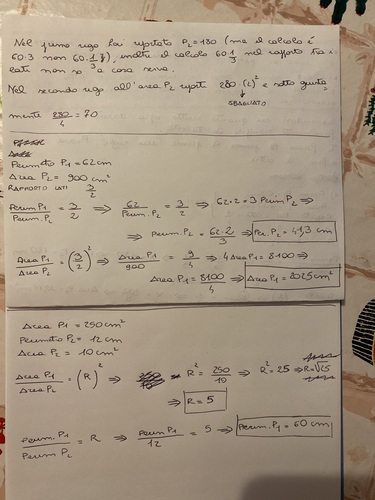 Nel primo rigo hai riportato P₂=180 (ma il calcolo è
60·3 non 60·1/3), inoltre il calcolo 60·1/3 nel rapporto tra i
lati non so a cosa serva.
Nel secondo rigo all'area P₂ riporti 280·(2)² e sotto giusta
SBAGLIATO
mente 280/4 = 70
Perimetro P₁ = 62 cm
Area P₂ = 900 cm²
RAPPORTO LATI 3/2
Perim. P₁/Perim. P₂ = 3/2 ⇒ 62/Perim. P₂ = 3/2 ⇒ 62·2 = 3 Perim P₂ ⇒
⇒ Perim. P₂ = 62·2/3 ⇒ Per. P₂ = 41,3 cm
Area P₁/Area P₂ = (3/2)² ⇒ Area P₁/900 = 9/4 ⇒ 4 Area P₁ = 8100 ⇒
Area P₁ = 8100/4 ⇒ Area P₁ = 2025 cm²
Area P₁ = 250 cm²
Perimetro P₂ = 12 cm
Area P₂ = 10 cm²
Area P₁/Area P₂ = (R)² ⇒ R² = 250/10 ⇒ R² = 25 ⇒ R=√25
⇒ R = 5
Perim. P₁/Perim P₂ = R ⇒ Perim P₁/12 = 5 ⇒ Perim. P₁ = 60 cm